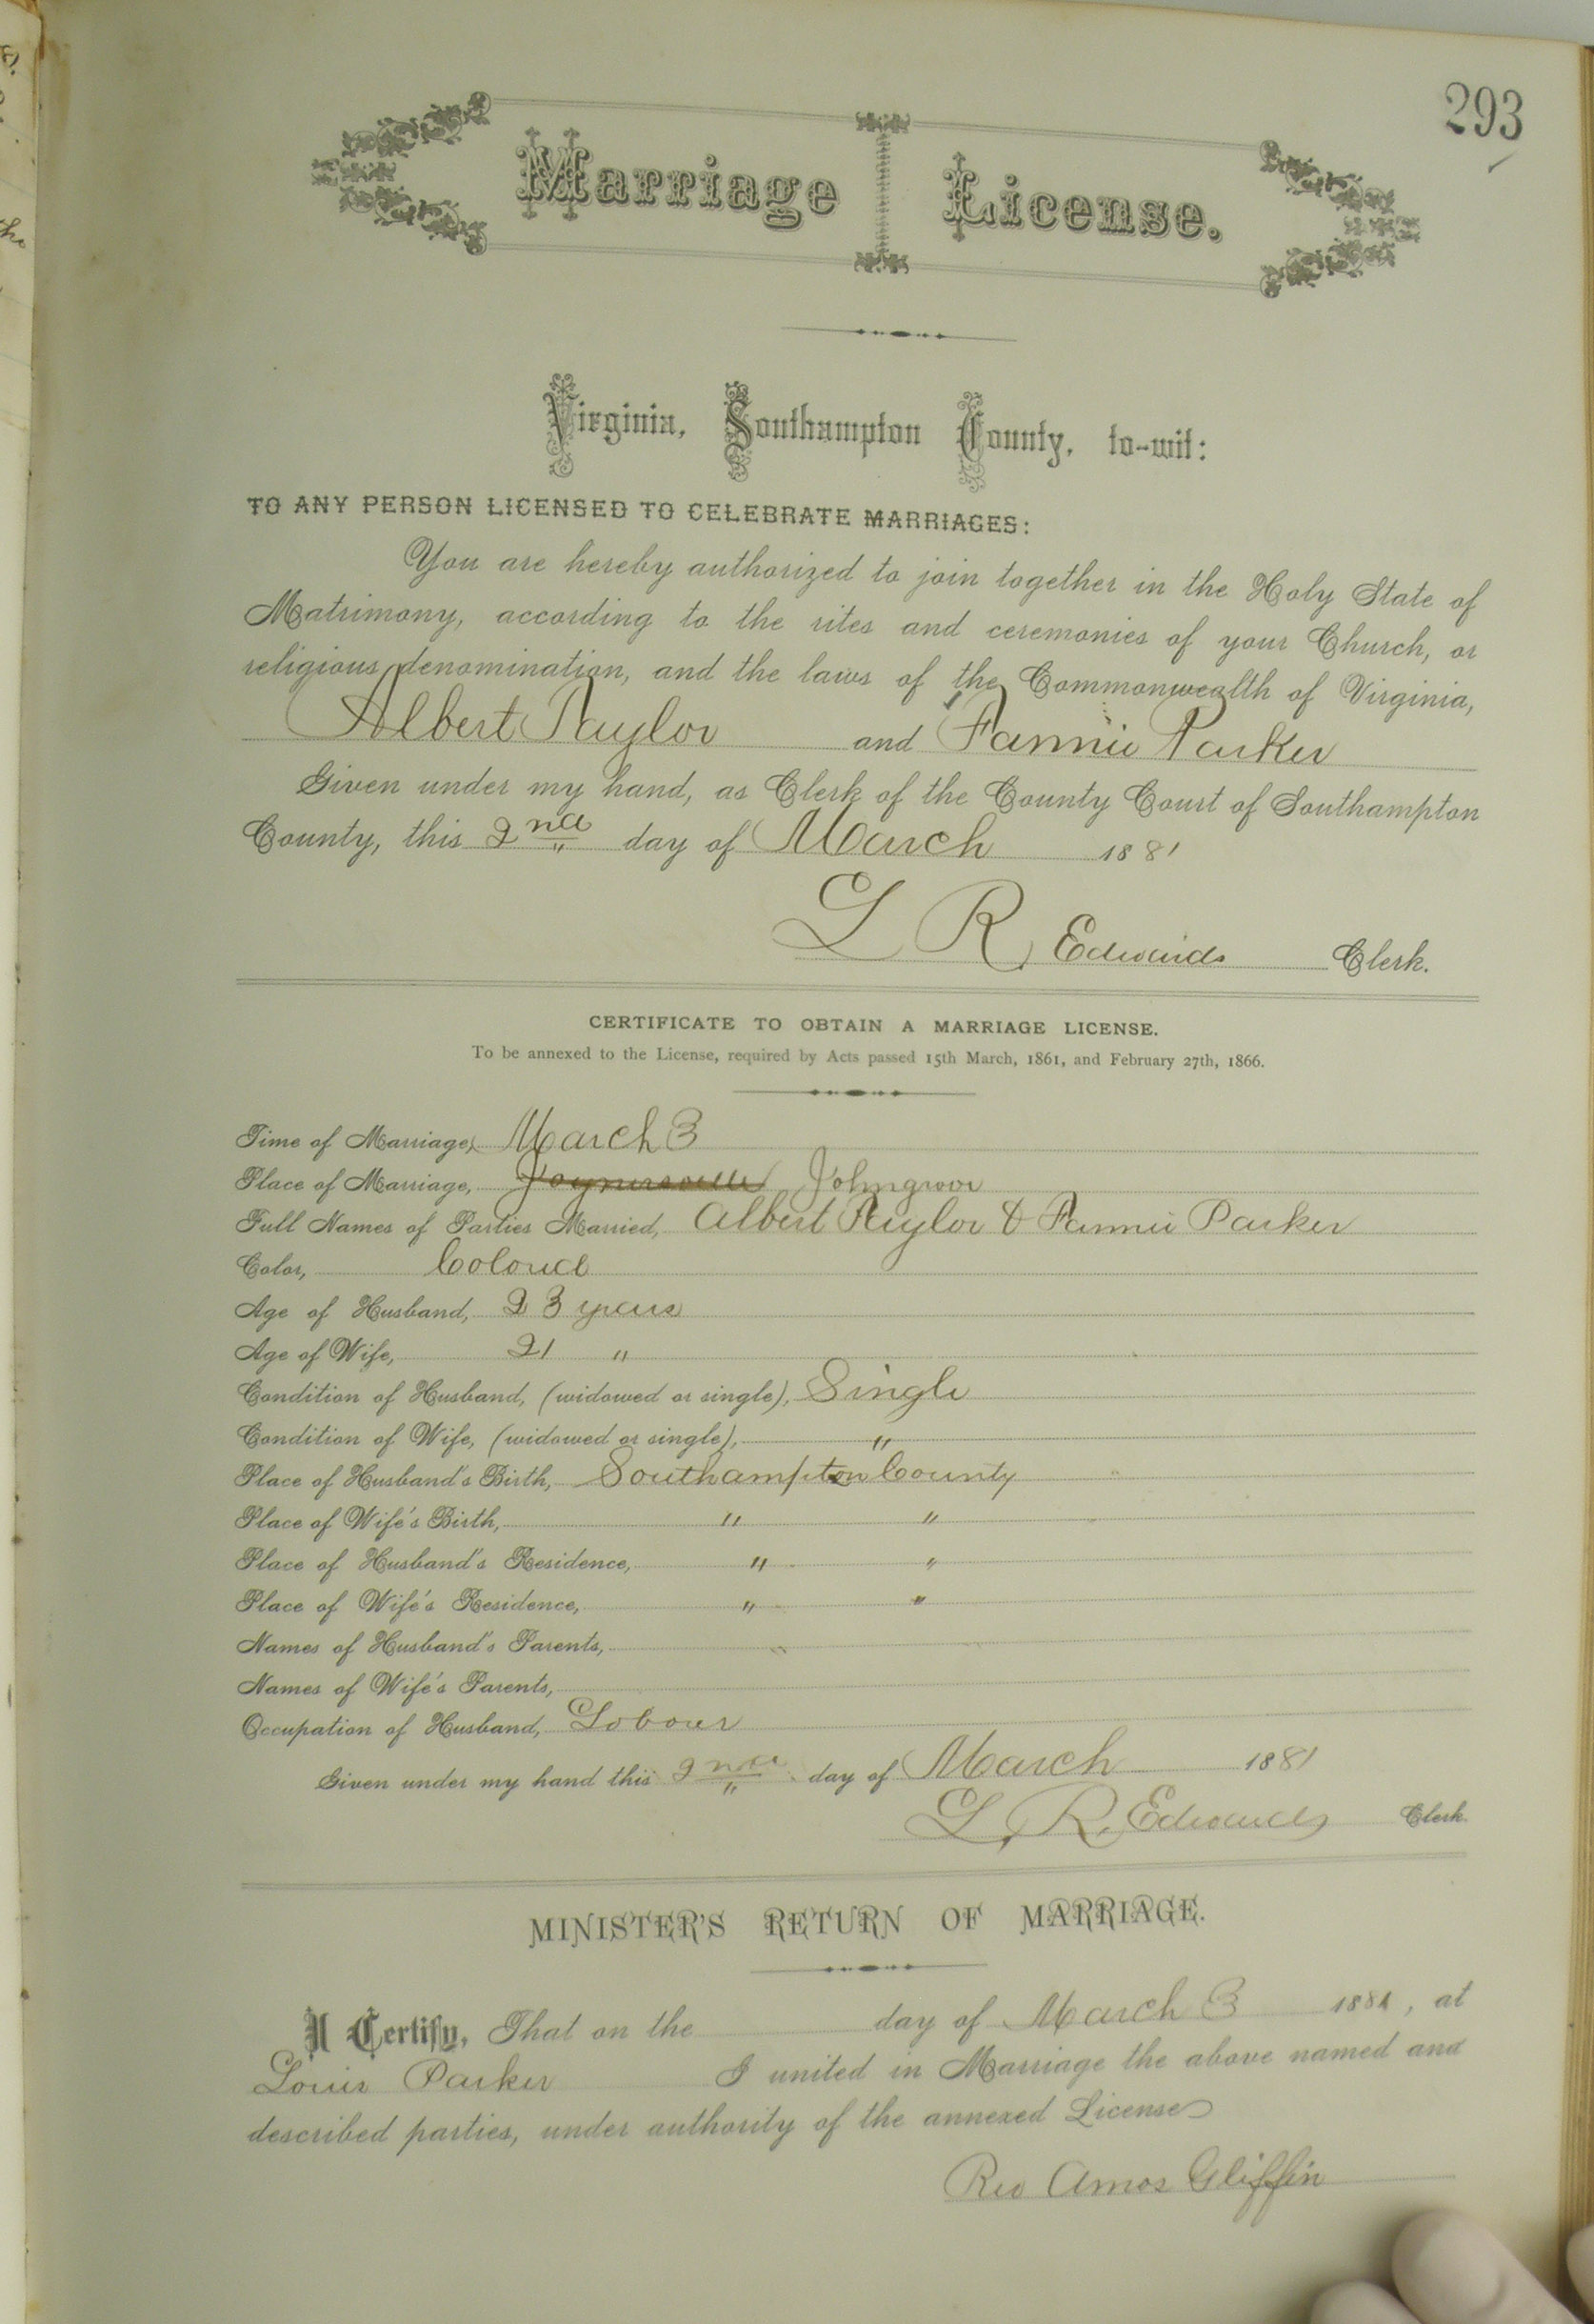 293
Marriage License.
Virginia, Southampton County, to-wit:
TO ANY PERSON LICENSED TO CELEBRATE MARRIAGES:
You are hereby authorized to join together in the Holy State of
Matrimony, according to the rites and ceremonies of your Church, or
religious denomination, and the laws of the Commonwealth of Virginia,
Albert Taylor and Fannie Parker
Given under my hand, as Clerk of the County Court of Southampton
County, this 2nd day of March 1881
L R Edwards Clerk.
CERTIFICATE TO OBTAIN A MARRIAGE LICENSE.
To be annexed to the License, required by Acts passed 15th March, 1861, and February 27th, 1866.
Time of Marriage, March 3
Place of Marriage, Joynersville
Full Names of Parties Married, Albert Taylor & Fannie Parker
Color, Colored
Age of Husband, 23 years
Age of Wife, 21 "
Condition of Husband, (widowed or single), Single
Condition of Wife, (widowed or single), "
Place of Husband's Birth, Southampton County
Place of Wife's Birth, " "
Place of Husband's Residence, " "
Place of Wife's Residence, " "
Names of Husband's Parents,
Names of Wife's Parents,
Occupation of Husband, Labourer
Given under my hand this 2nd day of March 1881
L. R. Edwards Clerk
MINISTER'S RETURN OF MARRIAGE.
I Certify, That on the day of March 3 1881, at
Louis Parker I united in Marriage the above named and
described parties, under authority of the annexed License
Rev Amos Gliffin